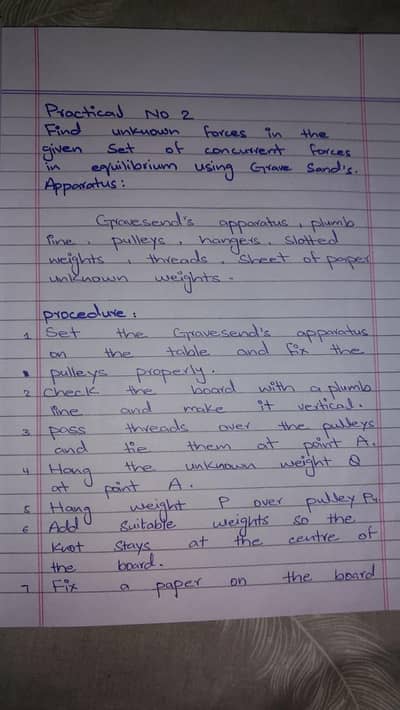 Practical No 2
Find unknown forces in the
given Set of concurrent forces
in equilibrium using Grave Sand's.
Apparatus:
Gravesend's apparatus, plumb
line, pulleys, hangers, slotted
weights, threads, sheet of paper
unknown weights.
procedure:
1 Set the Gravesend's apparatus
on the table and fix the
pulleys properly.
2 Check the board with a plumb
line and make it vertical.
3 pass threads over the pulleys
and tie them at point A.
4 Hang the unknown weight Q
at point A.
5 Hang weight P over pulley P1
6 Add suitable weights so the
Knot stays at the centre of
the board.
7 Fix a paper on the board